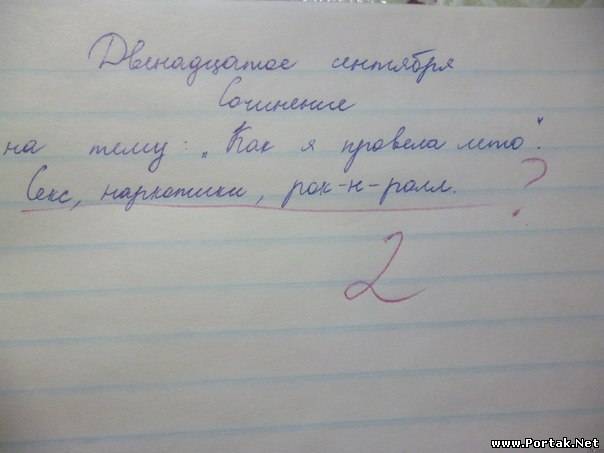 Двенадцатое сентября
Сочинение
на тему: „Как я провела лето".
Секс, наркотики, рок-н-ролл. ?
2
www.Portak.Net